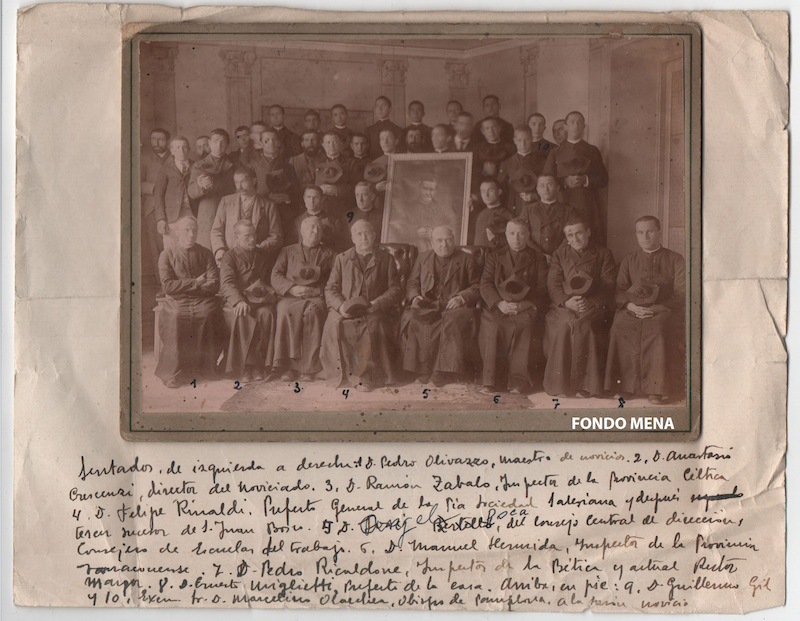 9
10
1 2 3 4 5 6 7 8
FONDO MENA
Sentados, de izquierda a derecha: 1 D. Pedro Olivazzo, maestro de novicios. 2, D. Anastasio
Crescenzi, director del Noviciado. 3, D. Ramón Zabalo, Inspector de la Provincia Céltica
4. D. Felipe Rinaldi. Prefecto General de la Pia Sociedad Salesiana y después
tercer sucesor de S. Juan Bosco. 5 D. Angel Roca, del Consejo Central de dirección,
Consejero de Escuelas del trabajo. 6. D. Manuel Hermida, Inspector de la Provincia
Tarraconense. 7. D. Pedro Ricaldone, Inspector de la Bética y actual Rector
Mayor. 8. D. Ernesto Miglietti, Prefecto de la casa. Arriba, en pie: 9, D. Guillermo Gil
y 10, Excm. Sr. D. Marcelino Olaechea, Obispo de Pamplona. a la sazón novicio